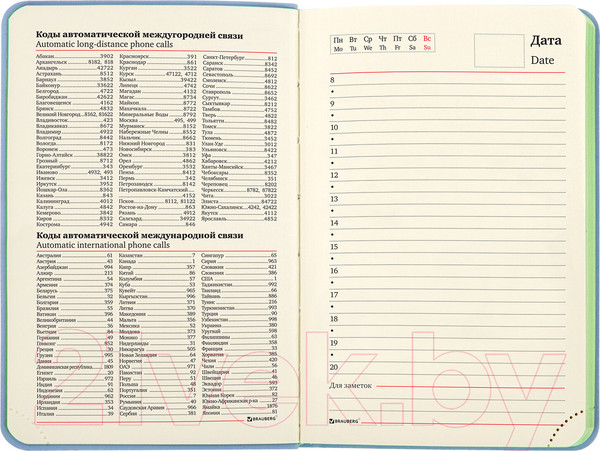 Коды автоматической междугородней связи
Automatic long-distance phone calls
Абакан 3902
Архангельск 8182, 818
Анадырь 42722
Астрахань 8512
Барнаул 3852
Байконур 33622
Белгород 4722
Биробиджан 42622
Благовещенск 4162
Брянск 4832
Великий Новгород 8162, 81622
Владивосток 423
Владикавказ 8672
Владимир 4922
Волгоград 8442
Вологда 8172
Воронеж 473
Горно-Алтайск 38822
Грозный 8712
Екатеринбург 343
Иваново 4932, 493
Ижевск 3412
Иркутск 3952
Йошкар-Ола 8362
Казань 843
Калининград 4012
Калуга 4842
Кемерово 3842
Киров 8332
Кострома 4942
Красноярск 391
Краснодар 861
Курган 3522
Курск 47122, 4712
Кызыл 39422
Липецк 4742
Магадан 4132
Магас 8734
Майкоп 8772
Махачкала 8722
Минеральные Воды 8792
Москва 495, 499
Мурманск 8152
Набережные Челны 8552
Нальчик 8662
Нижний Новгород 831
Новосибирск 383
Омск 3812
Орел 4862
Оренбург 3532
Пенза 8412
Пермь 342
Петрозаводск 8142
Петропавловск-Камчатский
Псков 8112, 81122
Ростов-на-Дону 863
Рязань 4912
Салехард 34922
Самара 846
Санкт-Петербург 812
Саранск 8342
Саратов 8452
Севастополь 8692
Смоленск 4812
Сочи 8622
Ставрополь 8652
Сургут 3462
Сыктывкар 8212
Тамбов 4752
Тверь 4822
Тольятти 8482
Томск 3822
Тула 4872
Тюмень 3452
Улан-Удэ 3012
Ульяновск 8422
Уфа 347
Хабаровск 4212
Ханты-Мансийск 3467
Чебоксары 8352
Челябинск 351
Череповец 8202
Черкесск 8782, 87822
Чита 3022
Элиста 84722
Южно-Сахалинск 4242, 42422
Якутск 4112
Ярославль 4852
Коды автоматической международной связи
Automatic international phone calls
Австралия 61
Австрия 43
Азербайджан 994
Алжир 213
Аргентина 54
Армения 374
Беларусь 375
Бельгия 32
Болгария 359
Бразилия 55
Ватикан 396
Великобритания 44
Венгрия 36
Вьетнам 84
Германия 49
Гонконг 852
Греция 30
Грузия 995
Дания 45
Доминиканская республика 1809
Египет 20
Израиль 972
Индия 91
Индонезия 62
Иордания 962
Ирландия 353
Испания 34
Италия 39
Казахстан 7
Канада 1
Кипр 357
Китай 86
Колумбия 57
Куба 53
Кувейт 965
Кыргызстан 996
Латвия 371
Литва 370
Македония 389
Мальта 356
Мексика 52
Молдова 373
Монако 377
Нидерланды 31
Никарагуа 505
Новая Зеландия 64
Норвегия 47
ОАЭ 971
Панама 507
Перу 51
Польша 48
Португалия 351
Россия 7
Румыния 40
Саудовская Аравия 966
Сербия 381
Сингапур 65
Сирия 963
Словакия 421
Словения 386
США 1
Таджикистан 992
Таиланд 66
Тайвань 886
Тунис 216
Туркменистан 993
Турция 90
Узбекистан 998
Украина 380
Уругвай 598
Филиппины 63
Финляндия 358
Франция 33
Хорватия 385
Чехия 420
Чили 56
Швейцария 41
Швеция 46
Эквадор 593
Эстония 372
Южная Корея 82
Южно-Африканская р-ка 27
Ямайка 1876
Япония 81
BRAUBERG
Пн Вт Ср Чт Пт Сб Вс
Mo Tu We Th Fr Sa Su
Дата
Date
8
9
10
11
12
13
14
15
16
17
18
19
20
Для заметок
BRAUBERG
21vek.by